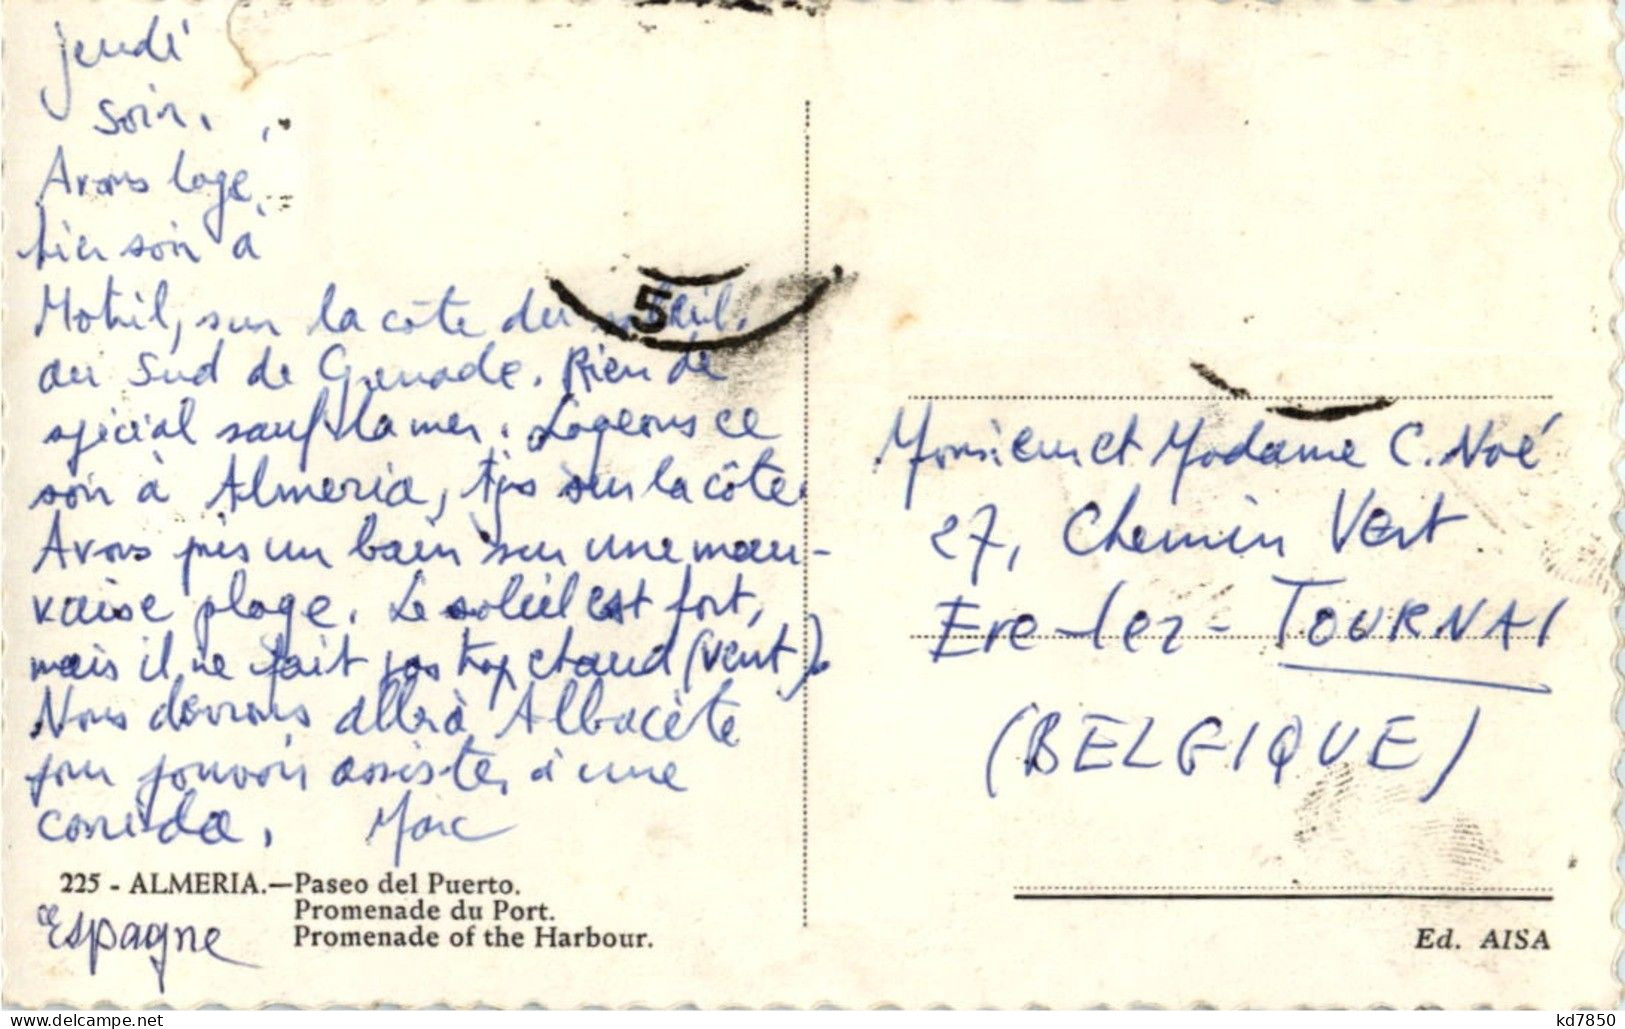 jeudi
soir.
Avons logé
hier soir à
Motril, sur la côte du soleil,
au Sud de Grenade. Rien de
spécial sauf la mer. Logeons ce
soir à Almeria, tjs sur la côte.
Avons pris un bain sur une mau-
vaise plage. Le soleil est fort,
mais il ne fait pas trop chaud (vent).
Nous devrons aller à Albacète
pour pouvoir assister à une
corrida. Marc
225 - ALMERIA.—Paseo del Puerto.
Promenade du Port.
Promenade of the Harbour.
Espagne
5
Monsieur et Madame C. Noé
27, Chemin Vert
Ere-lez-TOURNAI
(BELGIQUE)
Ed. AISA
kd7850